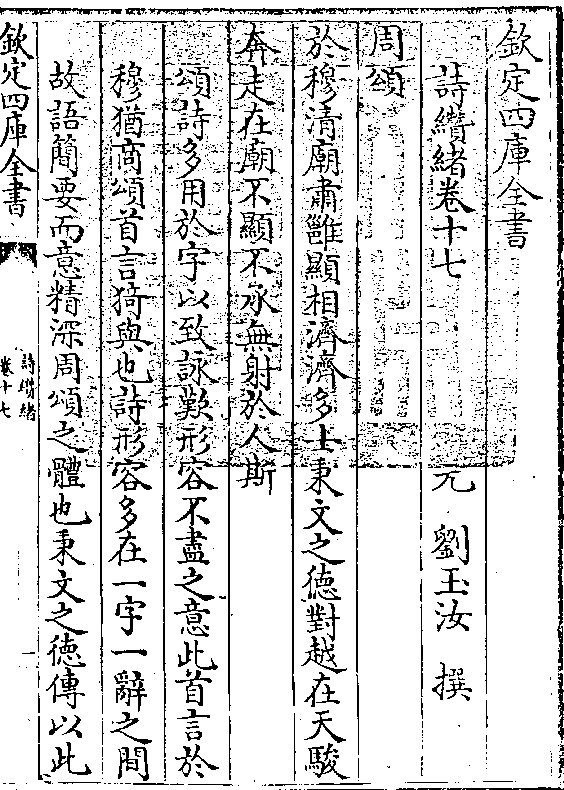 欽定四庫全書
詩纘緒卷十七
元 劉玉汝 撰
周頌
於穆清廟肅雝顯相濟濟多士秉文之德對越在天駿
奔走在廟不顯不承無射於人斯
頌詩多用於字以致詠歎形容不盡之意此首言於
穆猶商頌首言猗與也詩形容多在一字一辭之間
故語簡要而意精深周頌之體也秉文之徳傳以此
欽定四庫全書
詩纘緒
卷十七
一